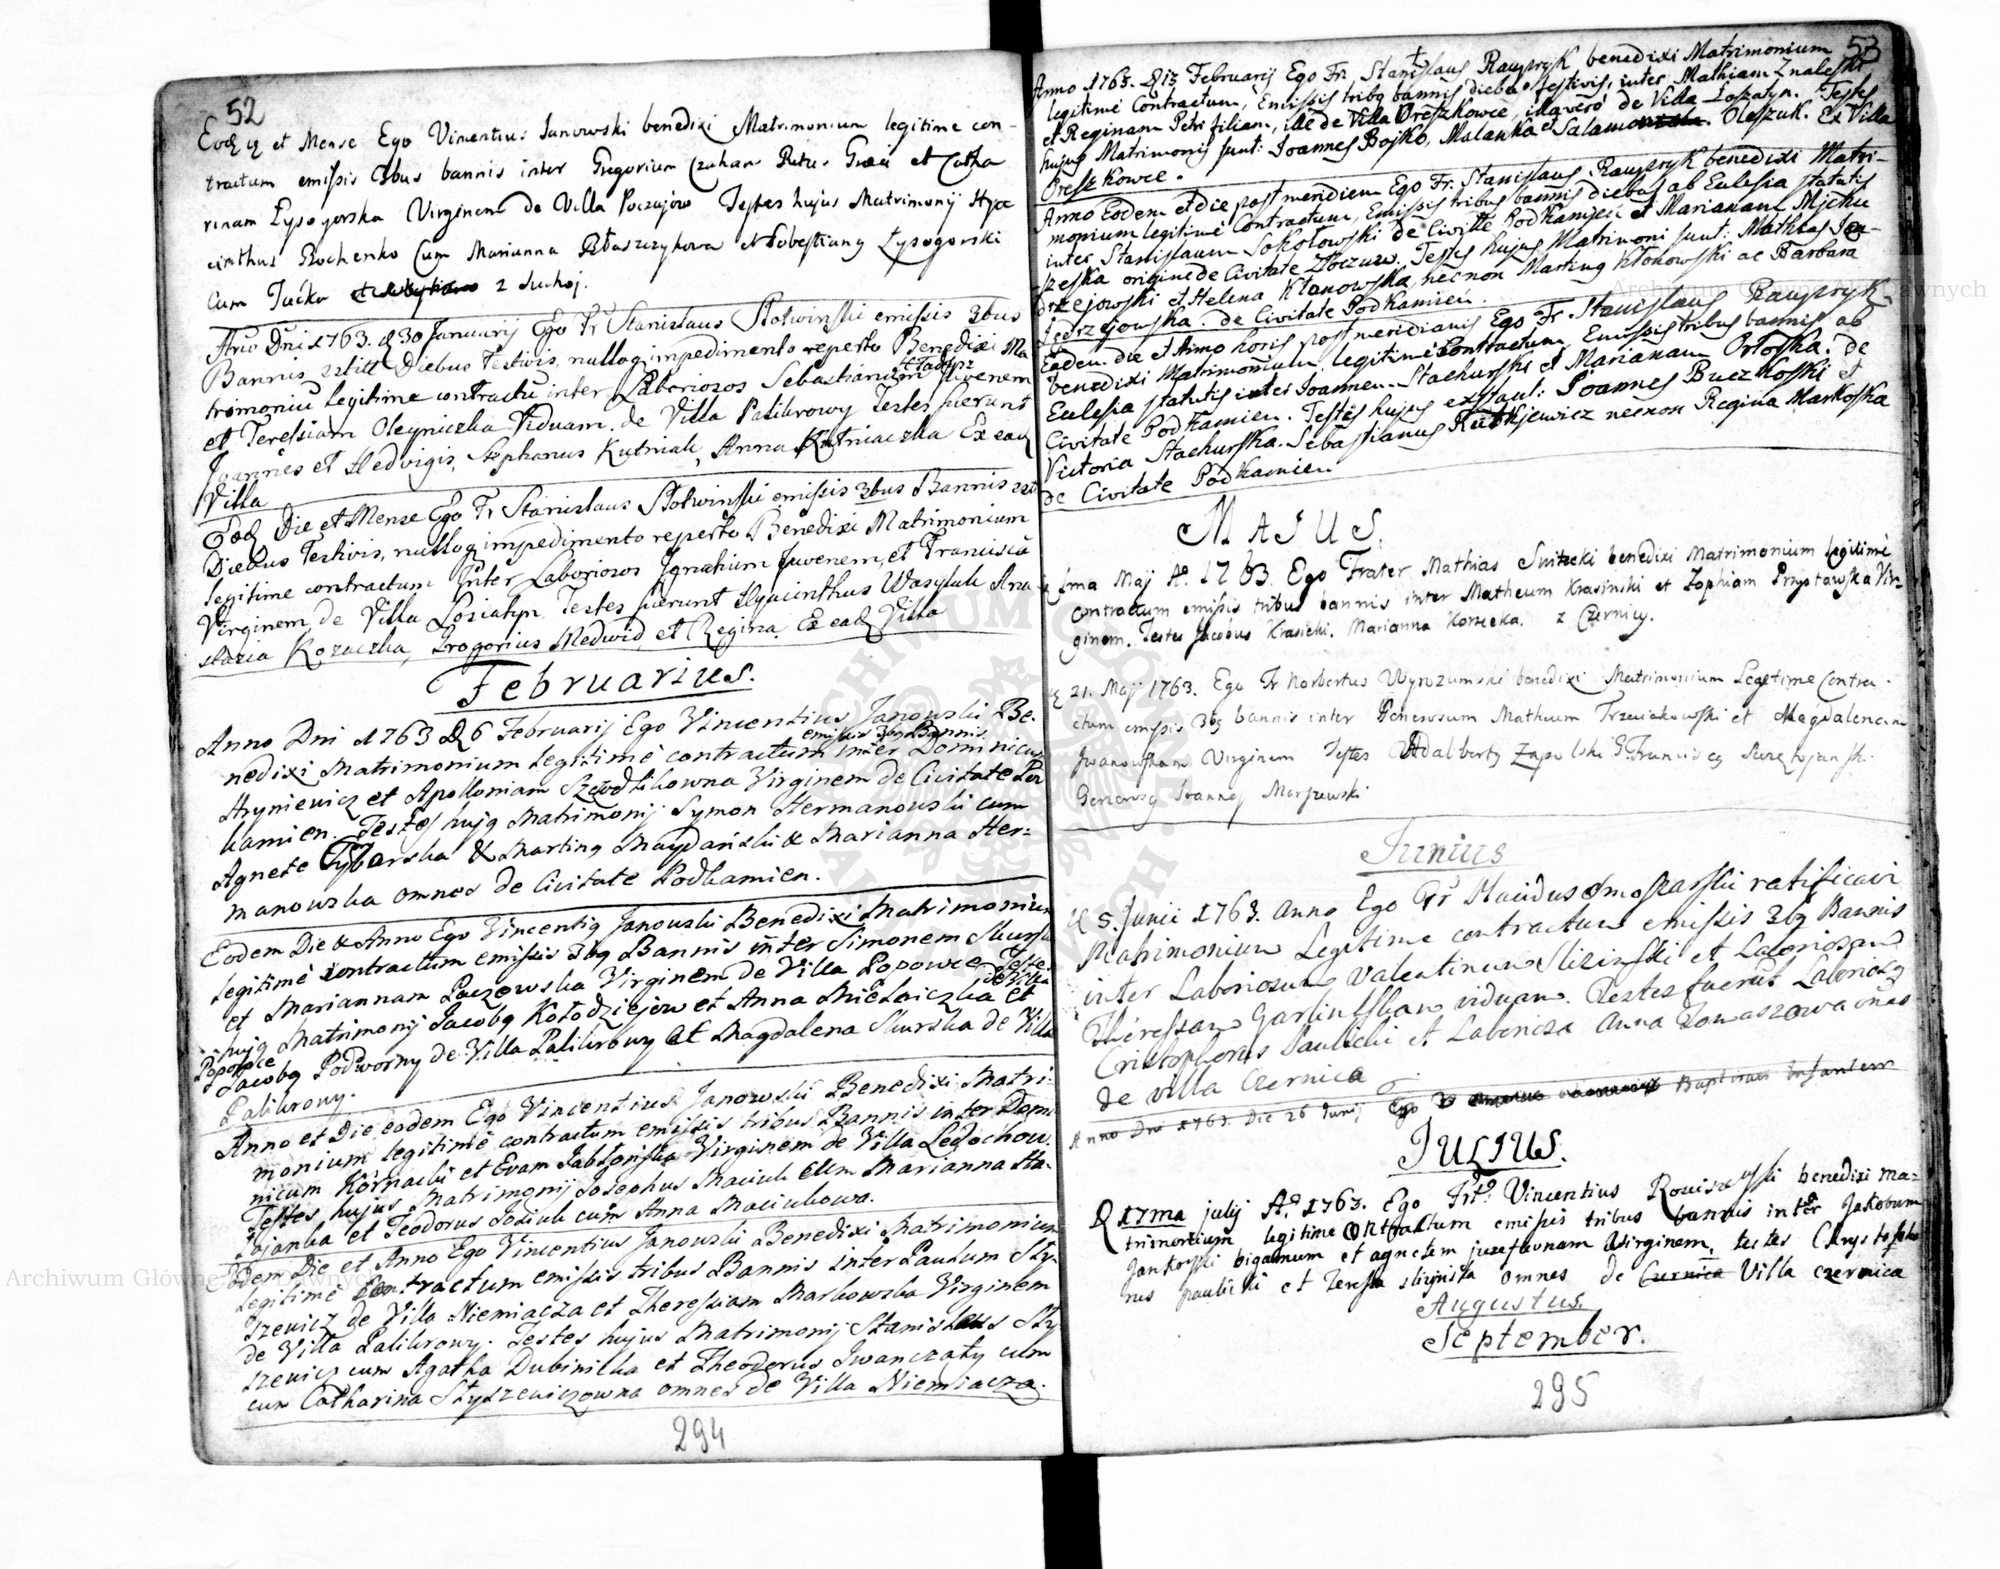 52
Eod d et Mense Ego Vincentius Janowski benedixi Matrimonium legitime con-
tractum emissis 3bus bannis inter Gregorium Czahan Ritus Graeci et Catha
rinam Łysogorska Virginem de Villa Poczajow Testes hujus Matrimonij Hyac
cinthus Bochenko Cum Marianna et Sobestianus Łysogorski
Cum Jucko z Suchoj.
Anno Dni 1763. d 30 Januarij Ego Fr Stanislaus Słotwinski emissis 3bus
Bannis Diebus Festivis, nulloq impedimento reperto Benedixi Ma
trimoniu legitime contractu inter Laboriosos Sebastianum Juvenem
et Teressiam Oleyniczka Viduam. de Villa Palikrowy Testes fuerunt
Joannes et Hedvigis, Stephanus Kutniak, Anna Kutniaczka Ex eadq
Villa
Eodq Die et Mense Ego Fr Stanislaus Słotwinski emissis 3bus Bannis
Diebus Festivis, nulloq impedimento reperto Benedixi Matrimonium
legitime contractum Inter Laboriosos Ignatium Juvenem, et Francisca
Virginem de Villa Losiatyn Testes fuerunt Hyacinthus Wasyluk Ana
stazia Kozaczka, Gregorius Medwid, et Regina. Ex eadq Villa
Februarius.
Anno Dni 1763 d 6 Februarij Ego Vincentius Janowski Be-
emissis 3bq Bannis
nedixi Matrimonium legitimè contractum inter Dominicum
Hryniewicz et Apolloniam Virginem de Civitate Pod
kamien. Testes hujq Matrimonij Symon Hermanowski cum
Agnete Tybarska & Martinq Maydański & Marianna Her=
manowska omnes de Civitate Podkamien.
Eodem Die & Anno Ego Vincentiq Janowski Benedixi Matrimonium
legitimè contractum emissis 3bq Bannis inter Simonem Skurski
et Mariannam Paczowska Virginem de Villa Popowce Testes
hujq Matrimonij Jacobq Kołodziejow et Anna Mielniczka et
Popowce
Jacobq Podworny de Villa Palikrowy et Magdalena Skurska de Villa
Palikrowy.
Anno et Die eodem Ego Vincentius Janowski Benedixi Matri-
monium legitimè contractum emissis tribus Bannis inter Domi
nicum Kornacki et Evam Jabłonska Virginem de Villa Ledochow.
Testes hujus Matrimonij Josephus Maciuk cum Marianna Ha-
łajanka et Teodorus Jodiuk cum Anna Maciukowa.
Eodem Die et Anno Ego Vincentius Janowski Benedixi Matrimonium
legitimè contractum emissis tribus Bannis inter Paulum Sty-
szewicz de Villa Niemiacza et Theressiam Markowska Virginem
de Villa Palikrowy. Testes hujus Matrimonij Stanislaus Sty
szewicz cum Agatha Dubinicka et Theodorus Iwanczaty cum
cum Catharina Styszewiczowna omnes de Villa Niemiacza.
294
53
Anno 1763. d 13 Februarij Ego Fr. Stanislaus Rauszryk benedixi Matrimonium
legitimè Contractum, Emissis tribq bannis diebq festivis, inter Mathiam Znaleski
et Reginam Petri filiam, ille de Villa Oreszkowce, illa vero de Villa Łoszatyn. Testes
hujus Matrimonij sunt: Joannes Bojko, Malanka et Salamo Oleszuk. Ex Villa
Oreszkowce.
Anno Eodem et die post meridiem Ego Fr. Stanislaus Rauszryk benedixi Matri-
monium legitimè Contractum, Emissis tribus bannis diebus ab Eclesia statutis
inter Stanislaum Sokołowski de Civitte Podkamień et Mariannam Mjchu
szeska origine de Civitate Zboczuw. Testes hujus Matrimoni sunt: Mathias Jen-
drzejowski et Helena Kłonowska, necnon Martinq Kłonowski ac Barbara
Jedrzejowska. de Civitate Podkamień.
Eadem die et Anno horis postmeridianis Ego Fr. Stanislaus Rauszryk
benedixi Matrimonium legitimè Contractum, Emissis tribus bannis ab
Eclesia statutis inter Joannem Stachurski et Mariannam Orłoska. de
Civitate Podkamien. Testes hujus exstant: Joannes Buczkoski et
Victoria Stachurska. Sebastianus Rutkjewicz necnon Regina Markoska
de Civitate Podkamien
MAJUS.
1ma Maij Ao. 1763. Ego Frater Mathias Switecki benedixi Matrimonium legitimè
contractum emissis tribus bannis inter Matheum Krasinski et Zophiam Przystawska Vir-
ginem. Testes Jacobus Krasicki. Marianna Korzecka. z Czernicy.
d 21. Maij 1763. Ego Fr Norbertus Wyrozumski benedixi Matrimonium Legetime Contra-
ctum emissis 3bq bannis inter Generosum Matheum Trzeciakowski et Magdalenam
Iwanowskam Virginem Testes Adalbertq Zapolski G. Franciscq
Generosq Joannes Marszewski
Junius
d 5. Junii 1763. anno Ego Fr Placidus Smoszarski ratificavi
Matrimonium Legitime contractum emissis 3bq Bannis
inter Laboriosum Valentinum Slizinski et Laboriosam
Theressam Garlinskam viduam. Testes fuerut Laboriosq
Cristophorus Paulicki et Laboriosa Anna Tomaszowa omes
de villa Czernica
Anno Dni 1763. Die 26 Junij Ego Baptizavi Infantem
JULIUS.
d 17ma julij Ao. 1763. Ego Frtr Vincentius benedixi ma=
trimonium legitime contractum emissis tribus bannis inter Jakobum
Jankoski bigamum et agnetem juzefkownam Virginem, testes Chrystopho
rus paulicki et Teressa slizinska omnes de Czernica Villa czernica
Augustus.
September.
295
Archiwum Główne Akt Dawnych